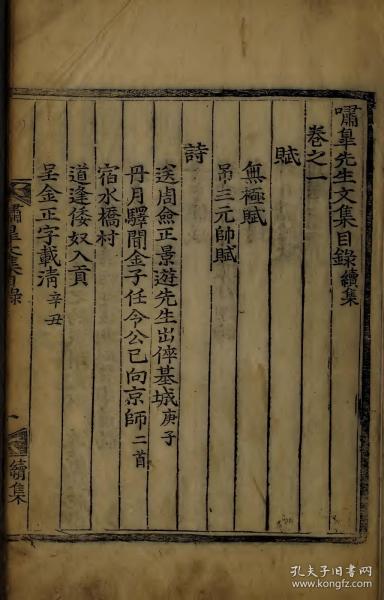 嘯皐先生文集目錄 續集
卷之一
賦
無極賦
吊三元帥賦
詩
送周僉正景遊先生出倅基城 庚子
丹月驛聞金子任令公已向京師 二首
宿水橋村
道逢倭奴入貢
呈金正字載清 辛丑
嘯皐文集目錄
一
續集
孔夫子旧书网
www.kongfz.com